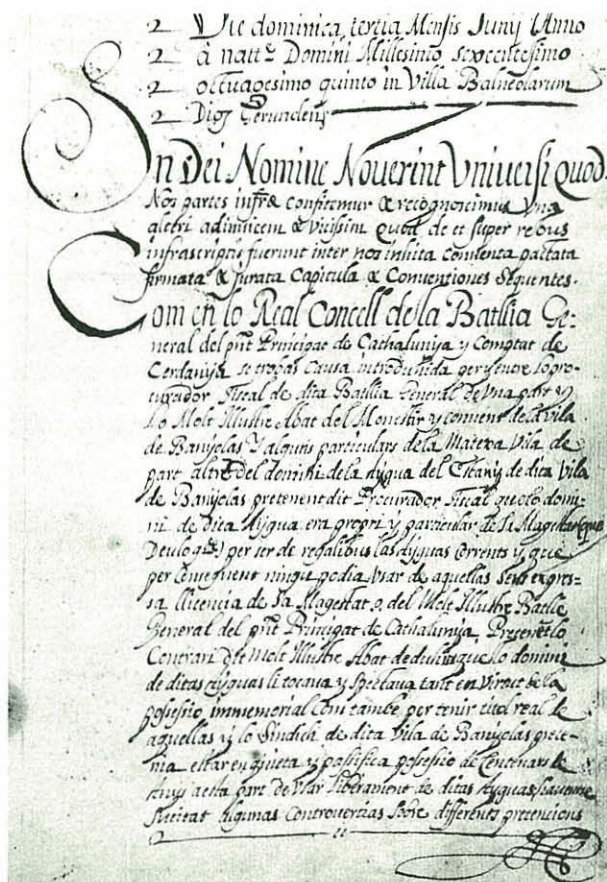 Die dominica tertia Mensis Junij Anno
â natt.e Domini Millesimo sexcentesimo
octuagesimo quinto in Villa Balneolarum
Dioz Gerundeñ
In Dei Nomine Noverint Universi Quod.
Nos partes infrã confitemur & recognoscimus Una
alteri adinvicem & vicissim Quod de et super rebus
infrascriptis fuerunt inter nos inhita conventa pactata
firmata & jurata Capitula & Conventiones Sequentes.
Com en lo Real Concell de la Batllia Ge:
neral del pñt Principat de Cathalunya y Comptat de
Cerdanya se trobas causa introduhida per y entre lo pro-
curador Fiscal de dita Batllia General de Una part y
Lo Molt Illustre Abat del Monestir y convent de la vila
de Banyolas Y alguns particulars de la Matexa Vila de
part altre del domini de la Aygua del Estany de dita Vila
de Banyolas pretenent dit Procurador Fiscal que lo domi-
ni de dita Aygua era propri y particular de Sa Magestat (que
Deu lo g.e) per ser de regalibus las Ayguas corrents y que
per conseguent ningu podia usar de aquellas sens expres-
sa llicencia de Sa Magestat o del Molt Illustre Batlle
General del pñt Principat de Cathalunya, Pretenent lo
Contrari dit Molt Illustre Abat que lo domini
de ditas Ayguas li tocava y Spectava tant en Virtut de la
possessio immemorial com tambe per tenir titol real de
aquellas y lo Sindich de dita Vila de Banyolas prete-
nia estar en quieta y passifica possessio de Centenars de
anys aesta part de Usar Liberament de ditas Ayguas
Sucitat Algunas Controversias Sobre differents pretencions